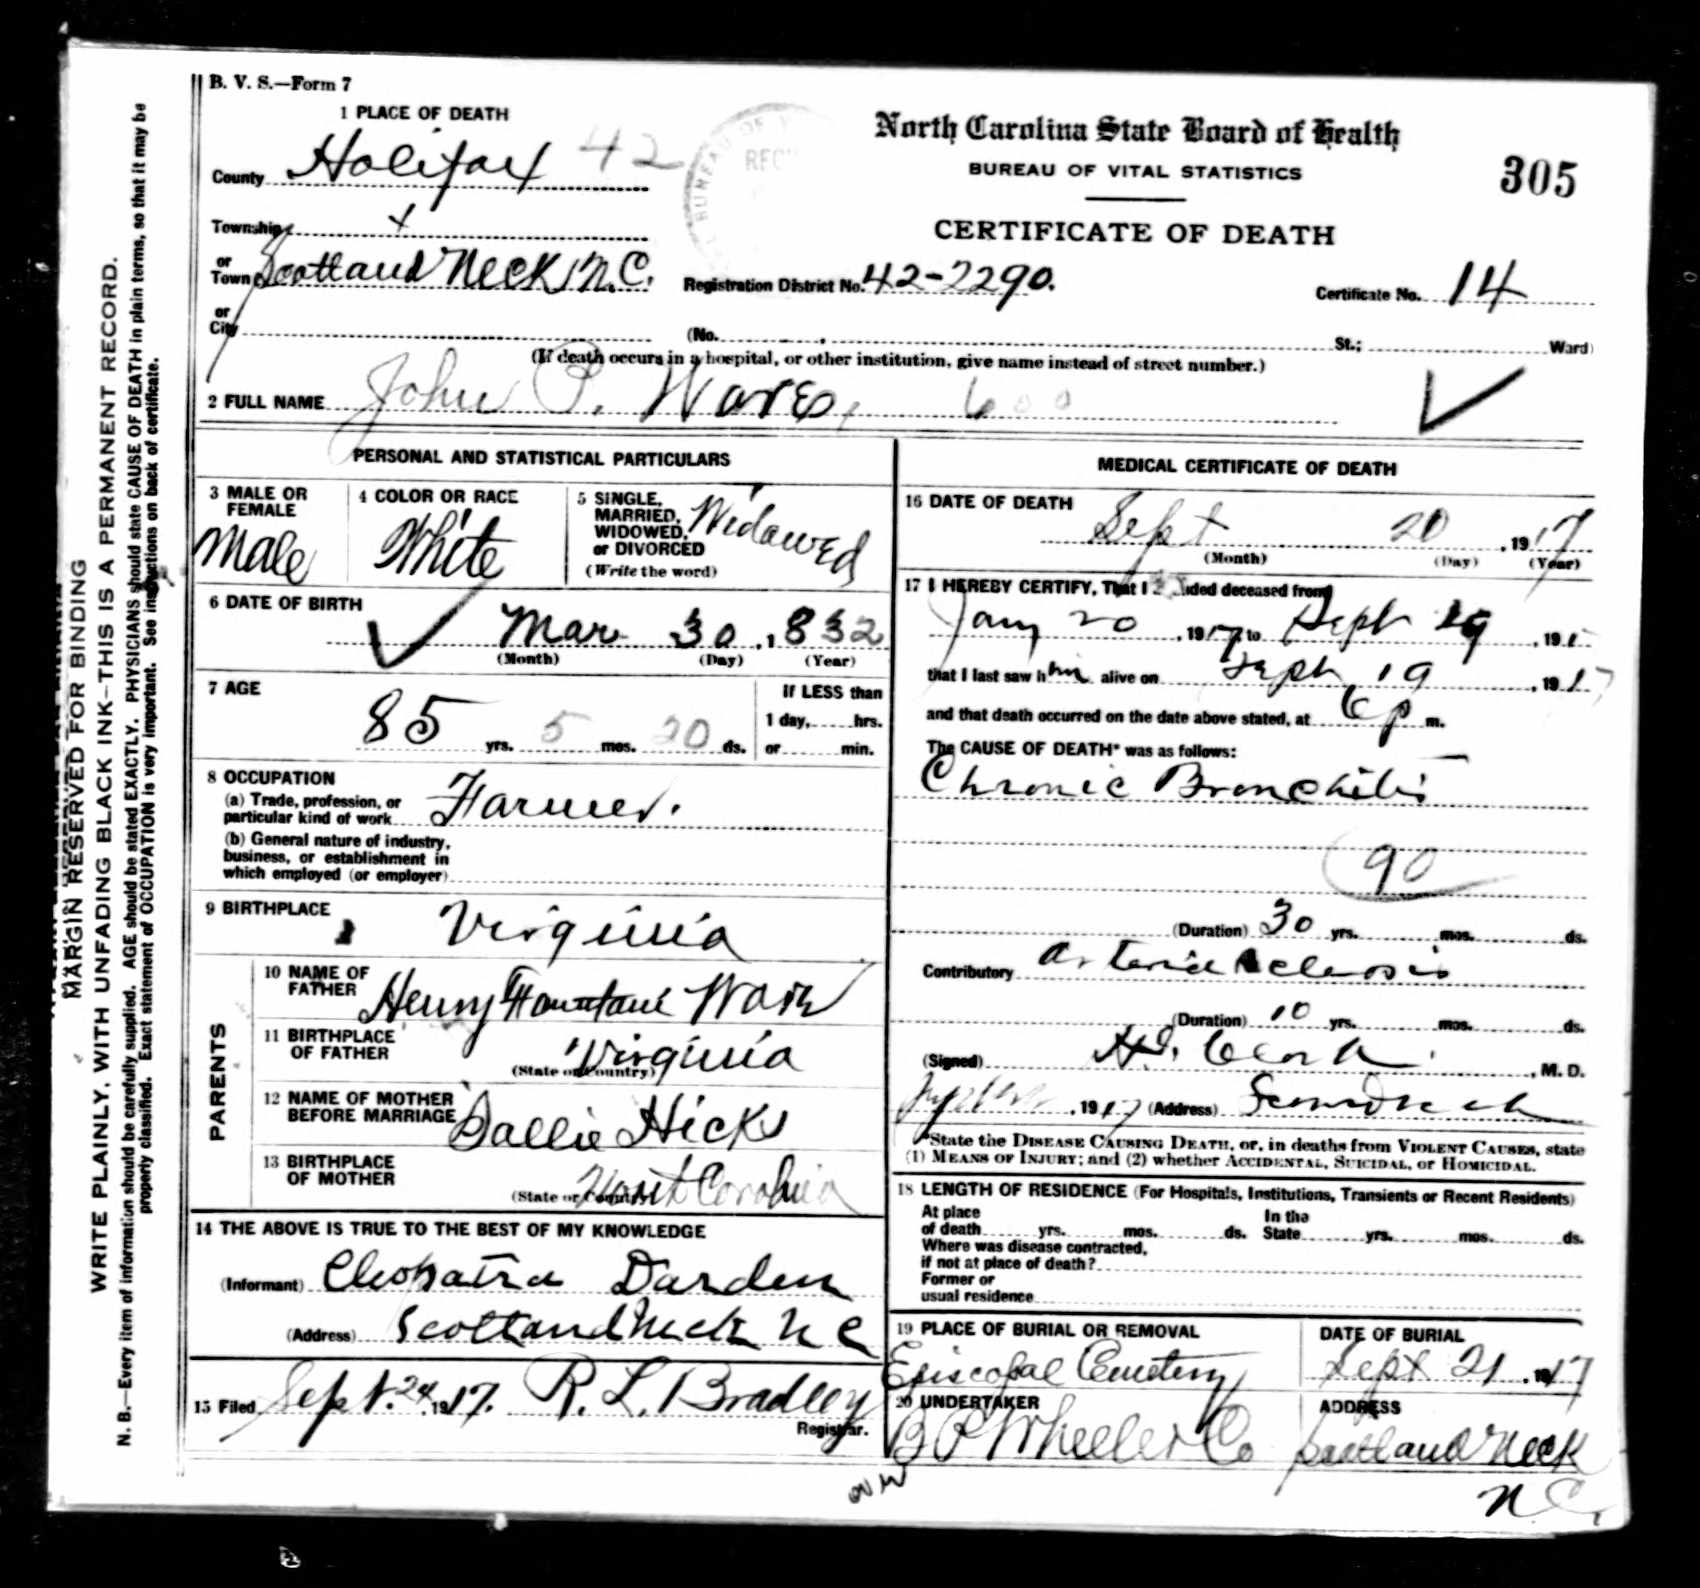 B. V. S.—Form 7
1 PLACE OF DEATH
County Halifax 42
Township x
or Town Scotland Neck N.C.
or City
North Carolina State Board of Health
BUREAU OF VITAL STATISTICS
305
CERTIFICATE OF DEATH
Registration District No. 42-2290.
Certificate No. 14
(No. St.; Ward)
(If death occurs in a hospital, or other institution, give name instead of street number.)
2 FULL NAME John P. Ware, 600
PERSONAL AND STATISTICAL PARTICULARS
3 MALE OR FEMALE
Male
4 COLOR OR RACE
White
5 SINGLE, MARRIED, WIDOWED, or DIVORCED
(Write the word)
Widowed
6 DATE OF BIRTH
Mar 30, 1832
(Month) (Day) (Year)
7 AGE
85 yrs. 5 mos. 20 ds.
If LESS than
1 day, hrs.
or min.
8 OCCUPATION
(a) Trade, profession, or
particular kind of work Farmer.
(b) General nature of industry,
business, or establishment in
which employed (or employer)
9 BIRTHPLACE
Virginia
PARENTS
10 NAME OF FATHER
Henry Fountane Ware
11 BIRTHPLACE OF FATHER
(State or Country) Virginia
12 NAME OF MOTHER BEFORE MARRIAGE
Sallie Hicks
13 BIRTHPLACE OF MOTHER
(State or Country) North Carolina
14 THE ABOVE IS TRUE TO THE BEST OF MY KNOWLEDGE
(Informant) Cleopatra Darden
(Address) Scotland Neck N C
15 Filed Sept. 24, 1917. R. L. Bradley
Registrar.
MEDICAL CERTIFICATE OF DEATH
16 DATE OF DEATH
Sept 20, 1917
(Month) (Day) (Year)
17 I HEREBY CERTIFY, That I attended deceased from
Jany 20, 1917, to Sept 19, 191
that I last saw him alive on Sept 19, 1917
and that death occurred on the date above stated, at 6 p m.
The CAUSE OF DEATH* was as follows:
Chronic Bronchitis
90
(Duration) 30 yrs. mos. ds.
Contributory Arterio Sclerosis
(Duration) 10 yrs. mos. ds.
(Signed) Clark, M. D.
, 1917 (Address)
*State the DISEASE CAUSING DEATH, or, in deaths from VIOLENT CAUSES, state
(1) MEANS OF INJURY; and (2) whether ACCIDENTAL, SUICIDAL, or HOMICIDAL.
18 LENGTH OF RESIDENCE (For Hospitals, Institutions, Transients or Recent Residents)
At place
of death yrs. mos. ds. In the State yrs. mos. ds.
Where was disease contracted,
if not at place of death?
Former or
usual residence
19 PLACE OF BURIAL OR REMOVAL
Episcopal Cemetery
DATE OF BURIAL
Sept 21, 1917
20 UNDERTAKER
B P Wheeler Co
ADDRESS
Scotland Neck
N C,
over
MARGIN RESERVED FOR BINDING
WRITE PLAINLY, WITH UNFADING BLACK INK—THIS IS A PERMANENT RECORD.
N. B.—Every item of information should be carefully supplied. AGE should be stated EXACTLY. PHYSICIANS should state CAUSE OF DEATH in plain terms, so that it may be
properly classified. Exact statement of OCCUPATION is very important. See instructions on back of certificate.